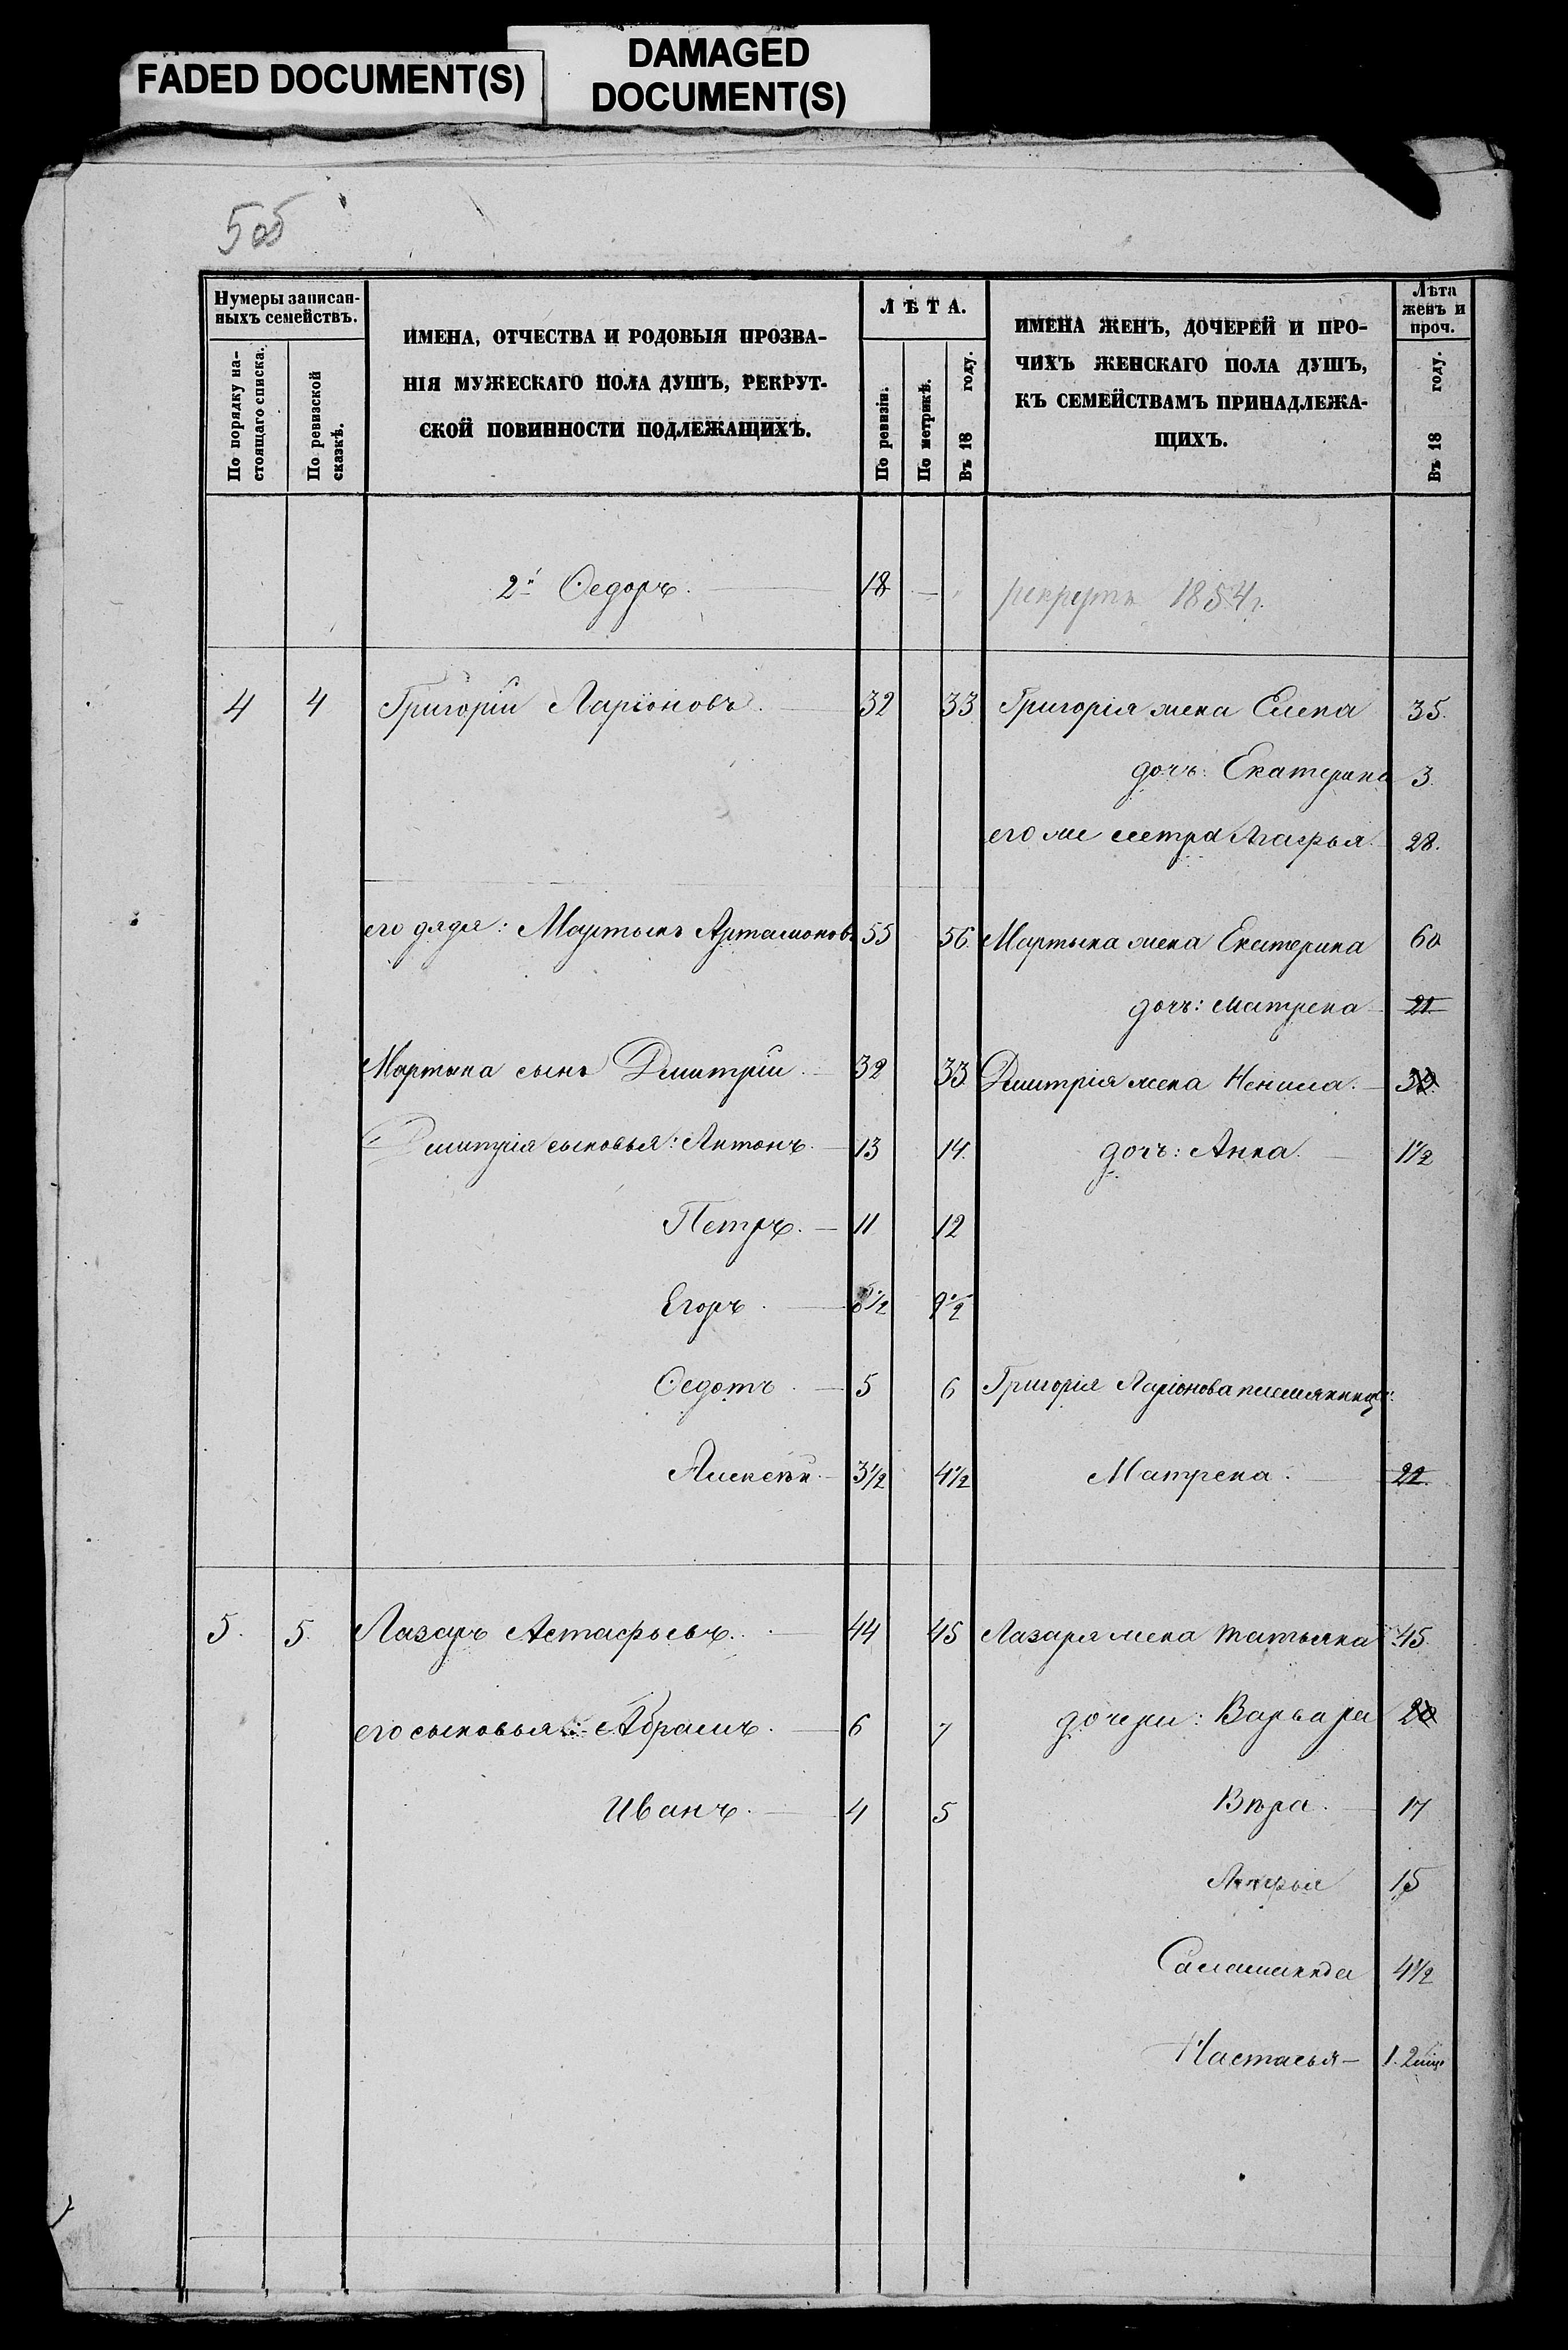 FADED DOCUMENT(S)
DAMAGED
DOCUMENT(S)
5об
Нумеры записан-
ныхъ семействъ.
По порядку на-
стоящаго списка.
По ревизской
сказкѣ.
ИМЕНА, ОТЧЕСТВА И РОДОВЫЯ ПРОЗВА-
НІЯ МУЖЕСКАГО ПОЛА ДУШЪ, РЕКРУТ-
СКОЙ ПОВИННОСТИ ПОДЛЕЖАЩИХЪ.
ЛѢТА.
По ревизіи.
По метрикѣ.
Въ 18 году.
ИМЕНА ЖЕНЪ, ДОЧЕРЕЙ И ПРО-
ЧИХЪ ЖЕНСКАГО ПОЛА ДУШЪ,
КЪ СЕМЕЙСТВАМЪ ПРИНАДЛЕЖА-
ЩИХЪ.
Лѣта
женъ и
проч.
Въ 18 году.
2й Ѳедоръ. 18 — рекрутъ 1854 г.
4 4 Григорій Ларіоновъ. 32 33 Григорія жена Елена 35.
дочь: Екатерина 3.
его же сестра Агафья. 28.
его дядя: Мартынъ Артамоновъ 55 56. Мартына жена Екатерина 60
дочь: Матрена 21.
Мартына сынъ Дмитрій. 32 33 Дмитрія жена Ненила.
Дмитрія сыновья: Антонъ. 13 14. дочь: Анна. 1½
Петръ. 11 12
Егоръ. 8½ 9½
Ѳедотъ. 5 6 Григорія Ларіонова племянница:
Алексѣй. 3½ 4½ Матрена. 22.
5. 5. Лазарь Астафьевъ. 44 45 Лазаря жена Татьяна 45.
его сыновья: Абрамъ. 6 7 дочери: Варвара 20
Иванъ. 4 5 Вѣра. 17
15
Саламанида 4½
Настасья 1. 2